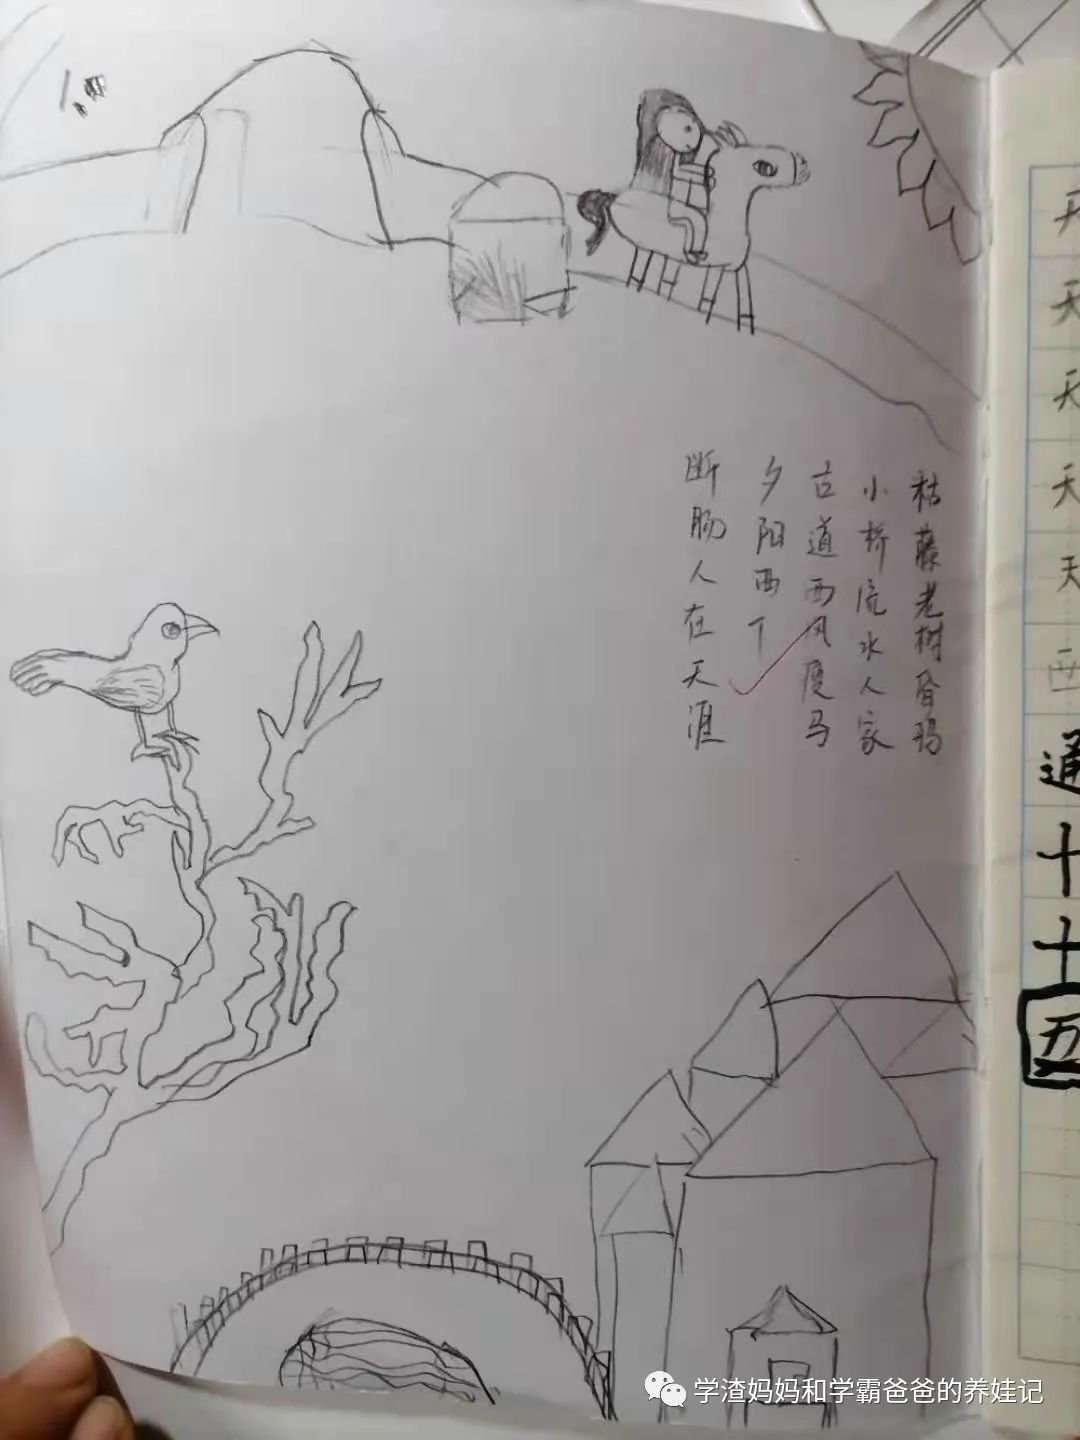 枯藤老树昏鸦
小桥流水人家
古道西风瘦马
夕阳西下
断肠人在天涯
天
天
天
天
天
西
通
十
十
五
学渣妈妈和学霸爸爸的养娃记